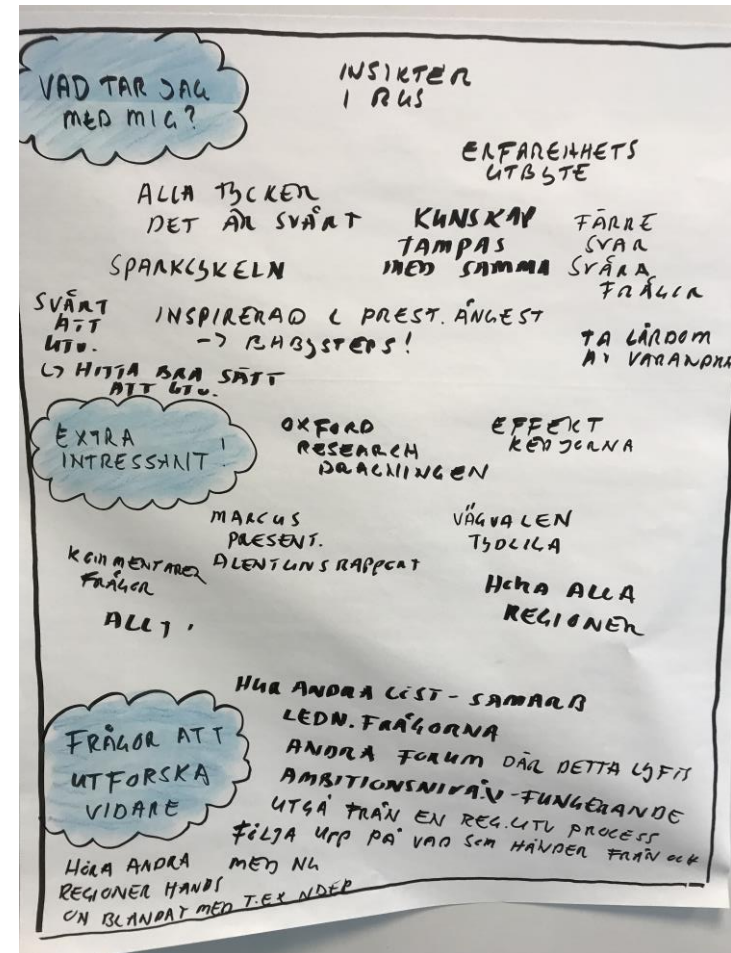 VAD TAR JAG
MED MIG?
INSIKTER
I RUS
ERFARENHETS
UTBYTE
ALLA TYCKER
DET ÄR SVÅRT
KUNSKAP
TAMPAS
MED SAMMA
FÄRRE
SVAR
SVÅRA
FRÅGOR
SPARKCYKELN
SVÅRT
ATT
UTV.
↳ HITTA BRA SÄTT
ATT UTV.
INSPIRERAD & PREST. ÅNGEST
-> BABYSTEPS!
TA LÄRDOM
AV VARANDRA
EXTRA
INTRESSANT!
OXFORD
RESEARCH
DRAGNINGEN
EFFEKT
KEDJORNA
MARCUS
PRESENT.
VÄGVALEN
TYDLIGA
KOMMENTARER
FRÅGOR
ALLT!
HÖRA ALLA
REGIONER
FRÅGOR ATT
UTFORSKA
VIDARE
HUR ANDRA LÖST - SAMARB
LEDN. FRÅGORNA
ANDRA FORUM DÄR DETTA LYFTS
AMBITIONSNIVÅN - FUNGERANDE
UTGÅ FRÅN EN REG. UTV PROCESS
FÖLJA UPP PÅ VAD SOM HÄNDER FRÅN OCK
MED NU
HÖRA ANDRA
REGIONER HANDS
ON BLANDAT MED T.EX